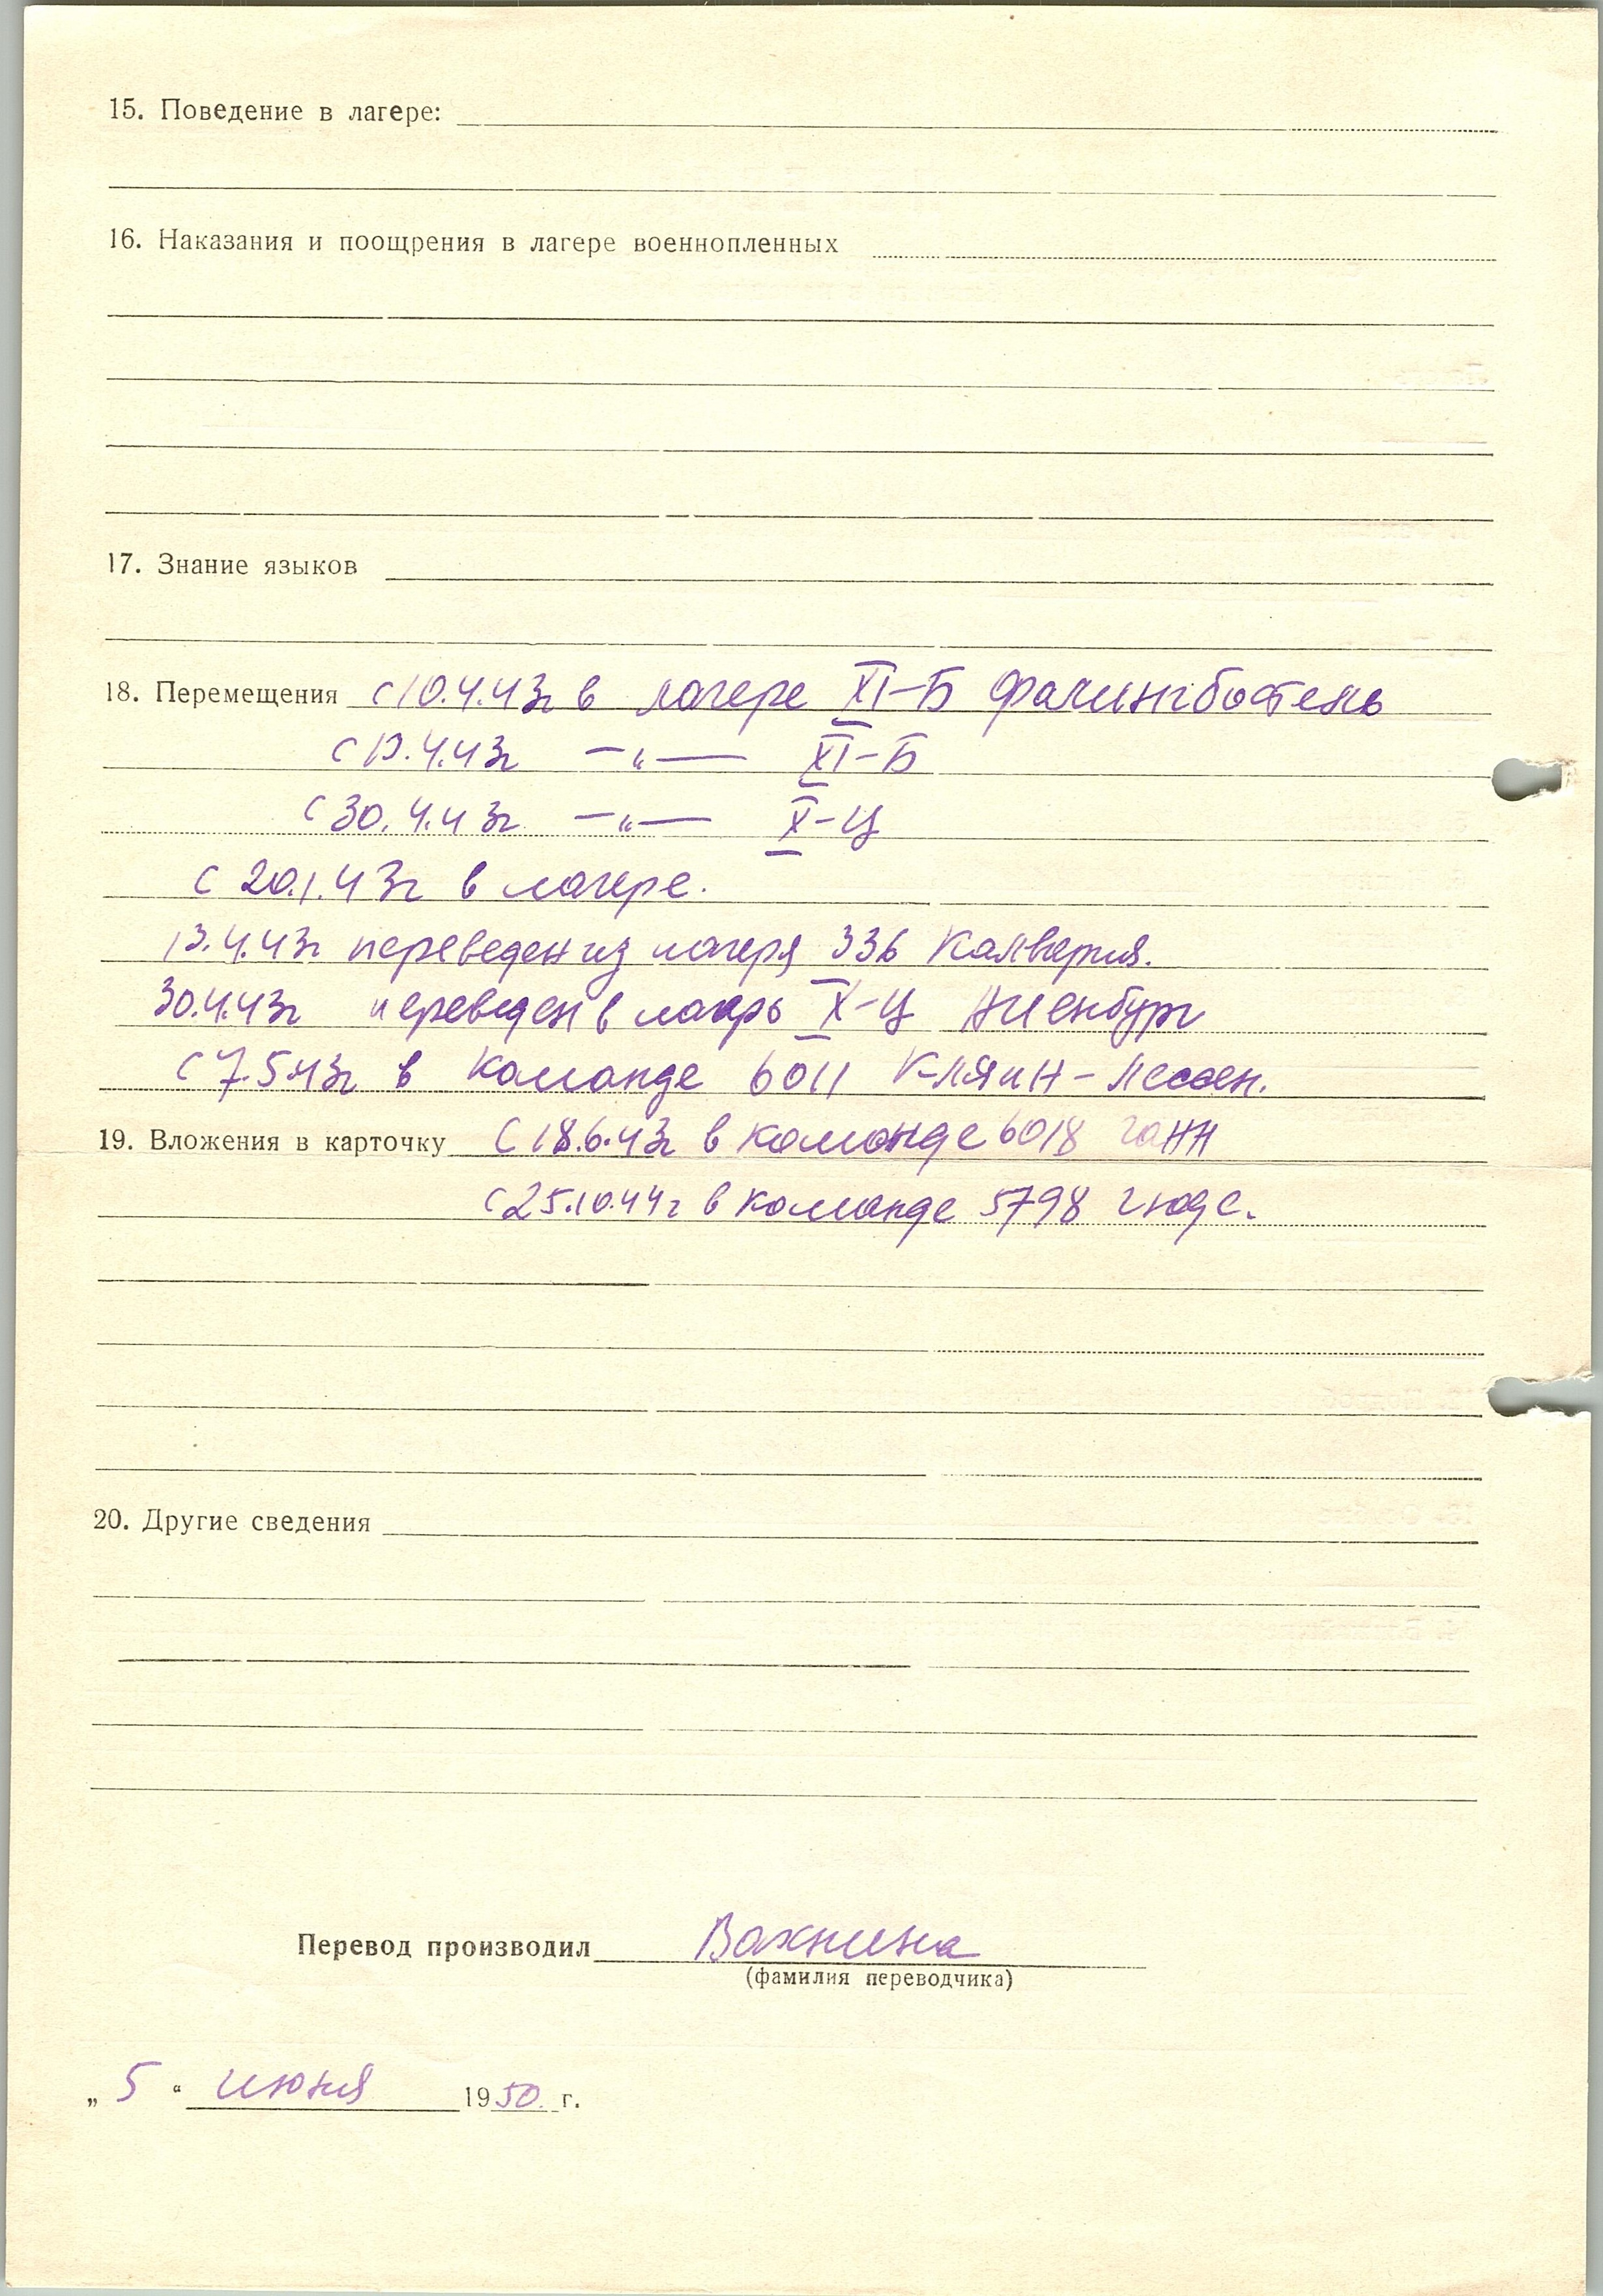 15. Поведение в лагере:
16. Наказания и поощрения в лагере военнопленных
17. Знание языков
18. Перемещения с 10.4.43г в лагере XI-Б Фалингбостель
с 13.4.43г —„— XI-Б
с 30.4.43г —„— X-Ц
с 20.1.43г в лагере.
13.4.43г переведен из лагеря 336 Калвария.
30.4.43г переведен в лагерь X-Ц Ниенбург
с 7.5.43г в команде 6011 Кляин-Лессен.
19. Вложения в карточку с 18.6.43г в команде 6018 Ганн
с 25.10.44г в команде 5798 Гюде.
20. Другие сведения
Перевод производил Вахнина
(фамилия переводчика)
„ 5 “ июня 1950 г.